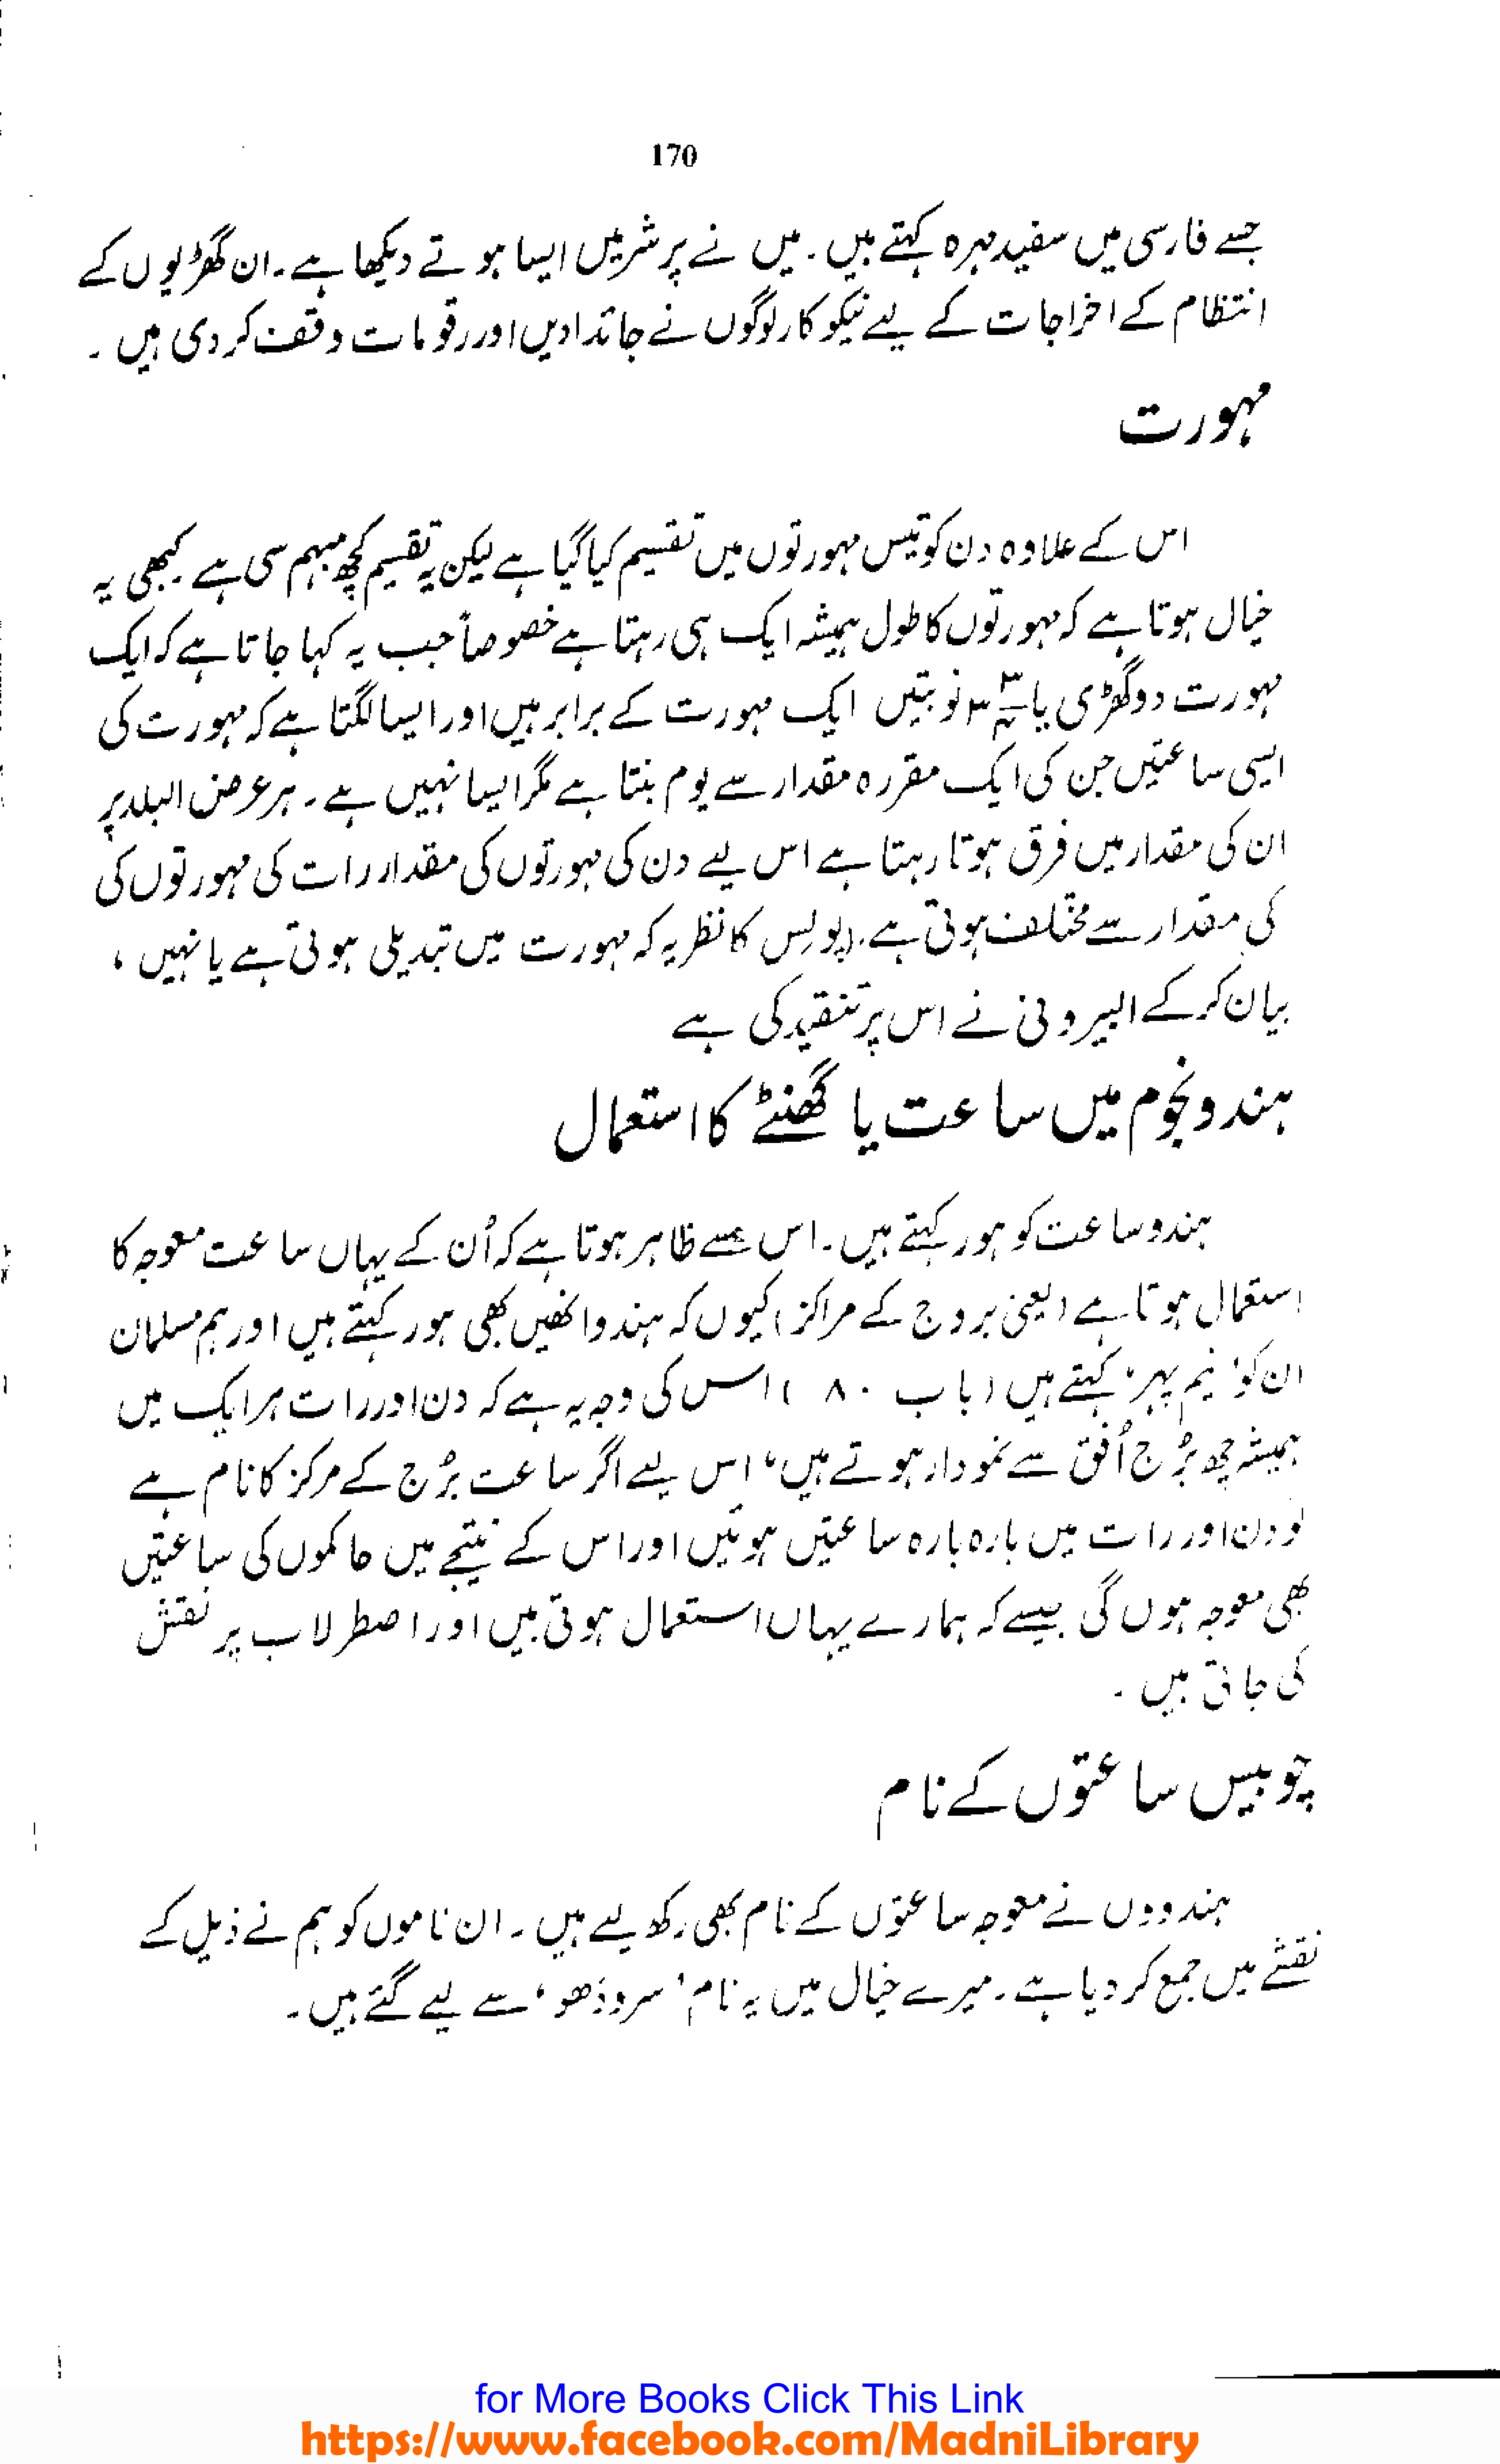 170
جسے فارسی میں سفید مہرہ کہتے ہیں۔ میں نے پر شر میں ایسا ہوتے دیکھا ہے۔ ان گھڑیوں کے
انتظام کے اخراجات کے لیے نیکو کار لوگوں نے جائدادیں اور رقومات وقف کر دی ہیں۔
مہورت
اس کے علاوہ دن کو تیس مہورتوں میں تقسیم کیا گیا ہے لیکن یہ تقسیم کچھ مبہم سی ہے۔ کبھی یہ
خیال ہوتا ہے کہ مہورتوں کا طول ہمیشہ ایک ہی رہتا ہے خصوصاً جب یہ کہا جاتا ہے کہ ایک
مہورت دو گھڑی یا نوبتیں ایک مہورت کے برابر ہیں اور ایسا لگتا ہے کہ مہورت کی
ایسی ساعتیں جن کی ایک مقررہ مقدار سے یوم بنتا ہے مگر ایسا نہیں ہے۔ ہر عرض البلد پر
ان کی مقدار میں فرق ہوتا رہتا ہے اس لیے دن کی مہورتوں کی مقدار رات کی مہورتوں کی
کی مقدار سے مختلف ہوتی ہے۔ (پولس کا نظریہ کہ مہورت میں تبدیلی ہوتی ہے یا نہیں،
بیان کر کے البیرونی نے اس پر تنقید کی ہے
ہندو نجوم میں ساعت یا گھنٹے کا استعمال
ہندو ساعت کو ہور کہتے ہیں۔ اس سے ظاہر ہوتا ہے کہ اُن کے یہاں ساعت معوجہ کا
استعمال ہوتا ہے (یعنی بروج کے مراکز) کیوں کہ ہندو انھیں بھی ہور کہتے ہیں اور ہم مسلمان
ان کو 'نیم پہر' کہتے ہیں (باب ۸۰) اس کی وجہ یہ ہے کہ دن اور رات ہر ایک میں
ہمیشہ چھ بُرج اُفق سے نمودار ہوتے ہیں، اس لیے اگر ساعت بُرج کے مرکز کا نام ہے
تو دن اور رات میں بارہ بارہ ساعتیں ہوئیں اور اس کے نتیجے میں حاکموں کی ساعتیں
بھی معوجہ ہوں گی جیسے کہ ہمارے یہاں استعمال ہوتی ہیں اور اصطرلاب پر نقش
کی جاتی ہیں۔
چوبیس ساعتوں کے نام
ہندووں نے معوجہ ساعتوں کے نام بھی رکھ لیے ہیں۔ ان ناموں کو ہم نے ذیل کے
نقشے میں جمع کر دیا ہے۔ میرے خیال میں یہ نام 'سروذھو' سے لیے گئے ہیں۔
for More Books Click This Link
https://www.facebook.com/MadniLibrary